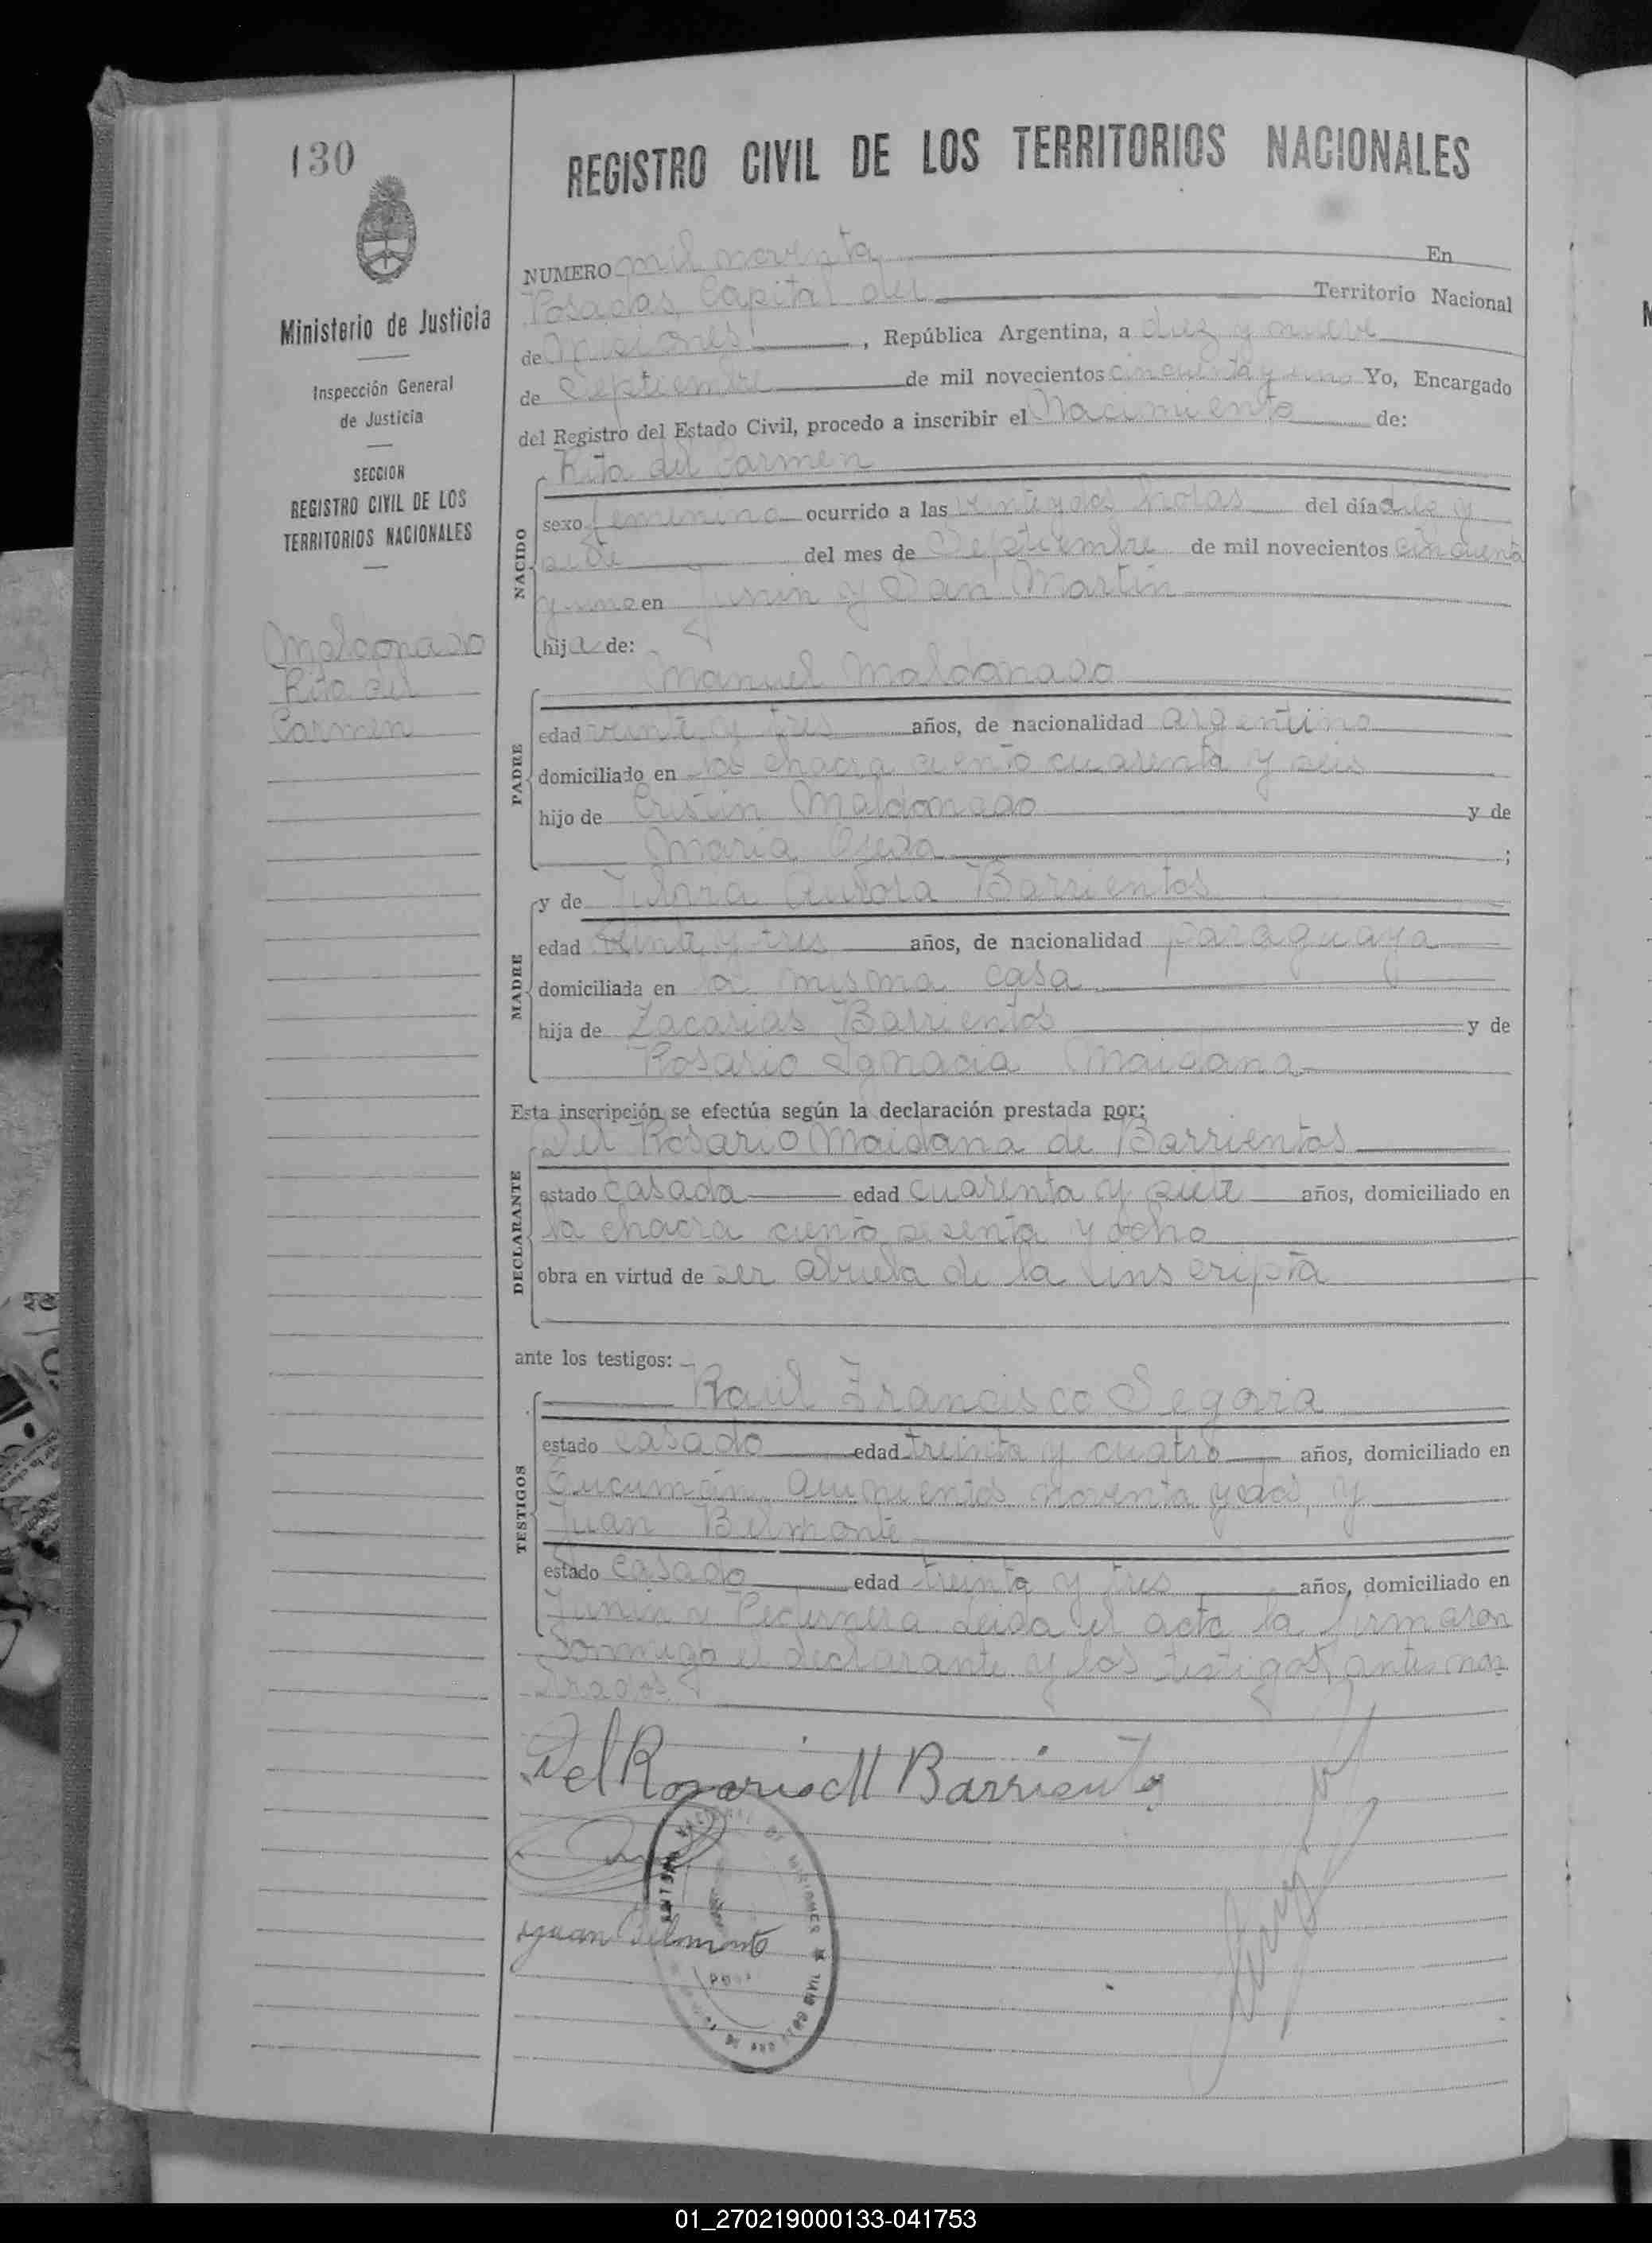 130
Ministerio de Justicia
Inspección General
de Justicia
SECCION
REGISTRO CIVIL DE LOS
TERRITORIOS NACIONALES
Maldonado
Rita del
Carmen
REGISTRO CIVIL DE LOS TERRITORIOS NACIONALES
NUMERO mil noventa En
Posadas, Capital del Territorio Nacional
de Misiones, República Argentina, a diez y nueve
de Septiembre de mil novecientos cincuenta y uno Yo, Encargado
del Registro del Estado Civil, procedo a inscribir el Nacimiento de:
NACIDO
Rita del Carmen
sexo femenino ocurrido a las veinte y dos horas del día diez y
siete del mes de Septiembre de mil novecientos cincuenta
y uno en Junín y San Martín
hija de:
PADRE
Manuel Maldonado
edad veinte y tres años, de nacionalidad argentino
domiciliado en la chacra ciento cuarenta y seis
hijo de Cristin Maldonado y de
Maria Ojeda ;
MADRE
y de Aurora Barrientos
edad veinte y tres años, de nacionalidad paraguaya
domiciliada en la misma casa
hija de Zacarias Barrientos y de
Rosario Ignacia Maidana
Esta inscripción se efectúa según la declaración prestada por:
DECLARANTE
Del Rosario Maidana de Barrientos
estado casada edad cuarenta y siete años, domiciliado en
la chacra ciento sesenta y ocho
obra en virtud de ser abuela de la inscripta
ante los testigos:
TESTIGOS
Raúl Francisco Segovia
estado casado edad treinta y cuatro años, domiciliado en
Tucumán quinientos noventa y dos, y
Juan Belmonte
estado casado edad treinta y tres años, domiciliado en
Junín y Pedernera. Leida el acta la firmaron
conmigo el declarante y los testigos antes nom-
brados.
Del Rosario M Barrientos
Juan Belmonte
MISIONES
01_270219000133-041753